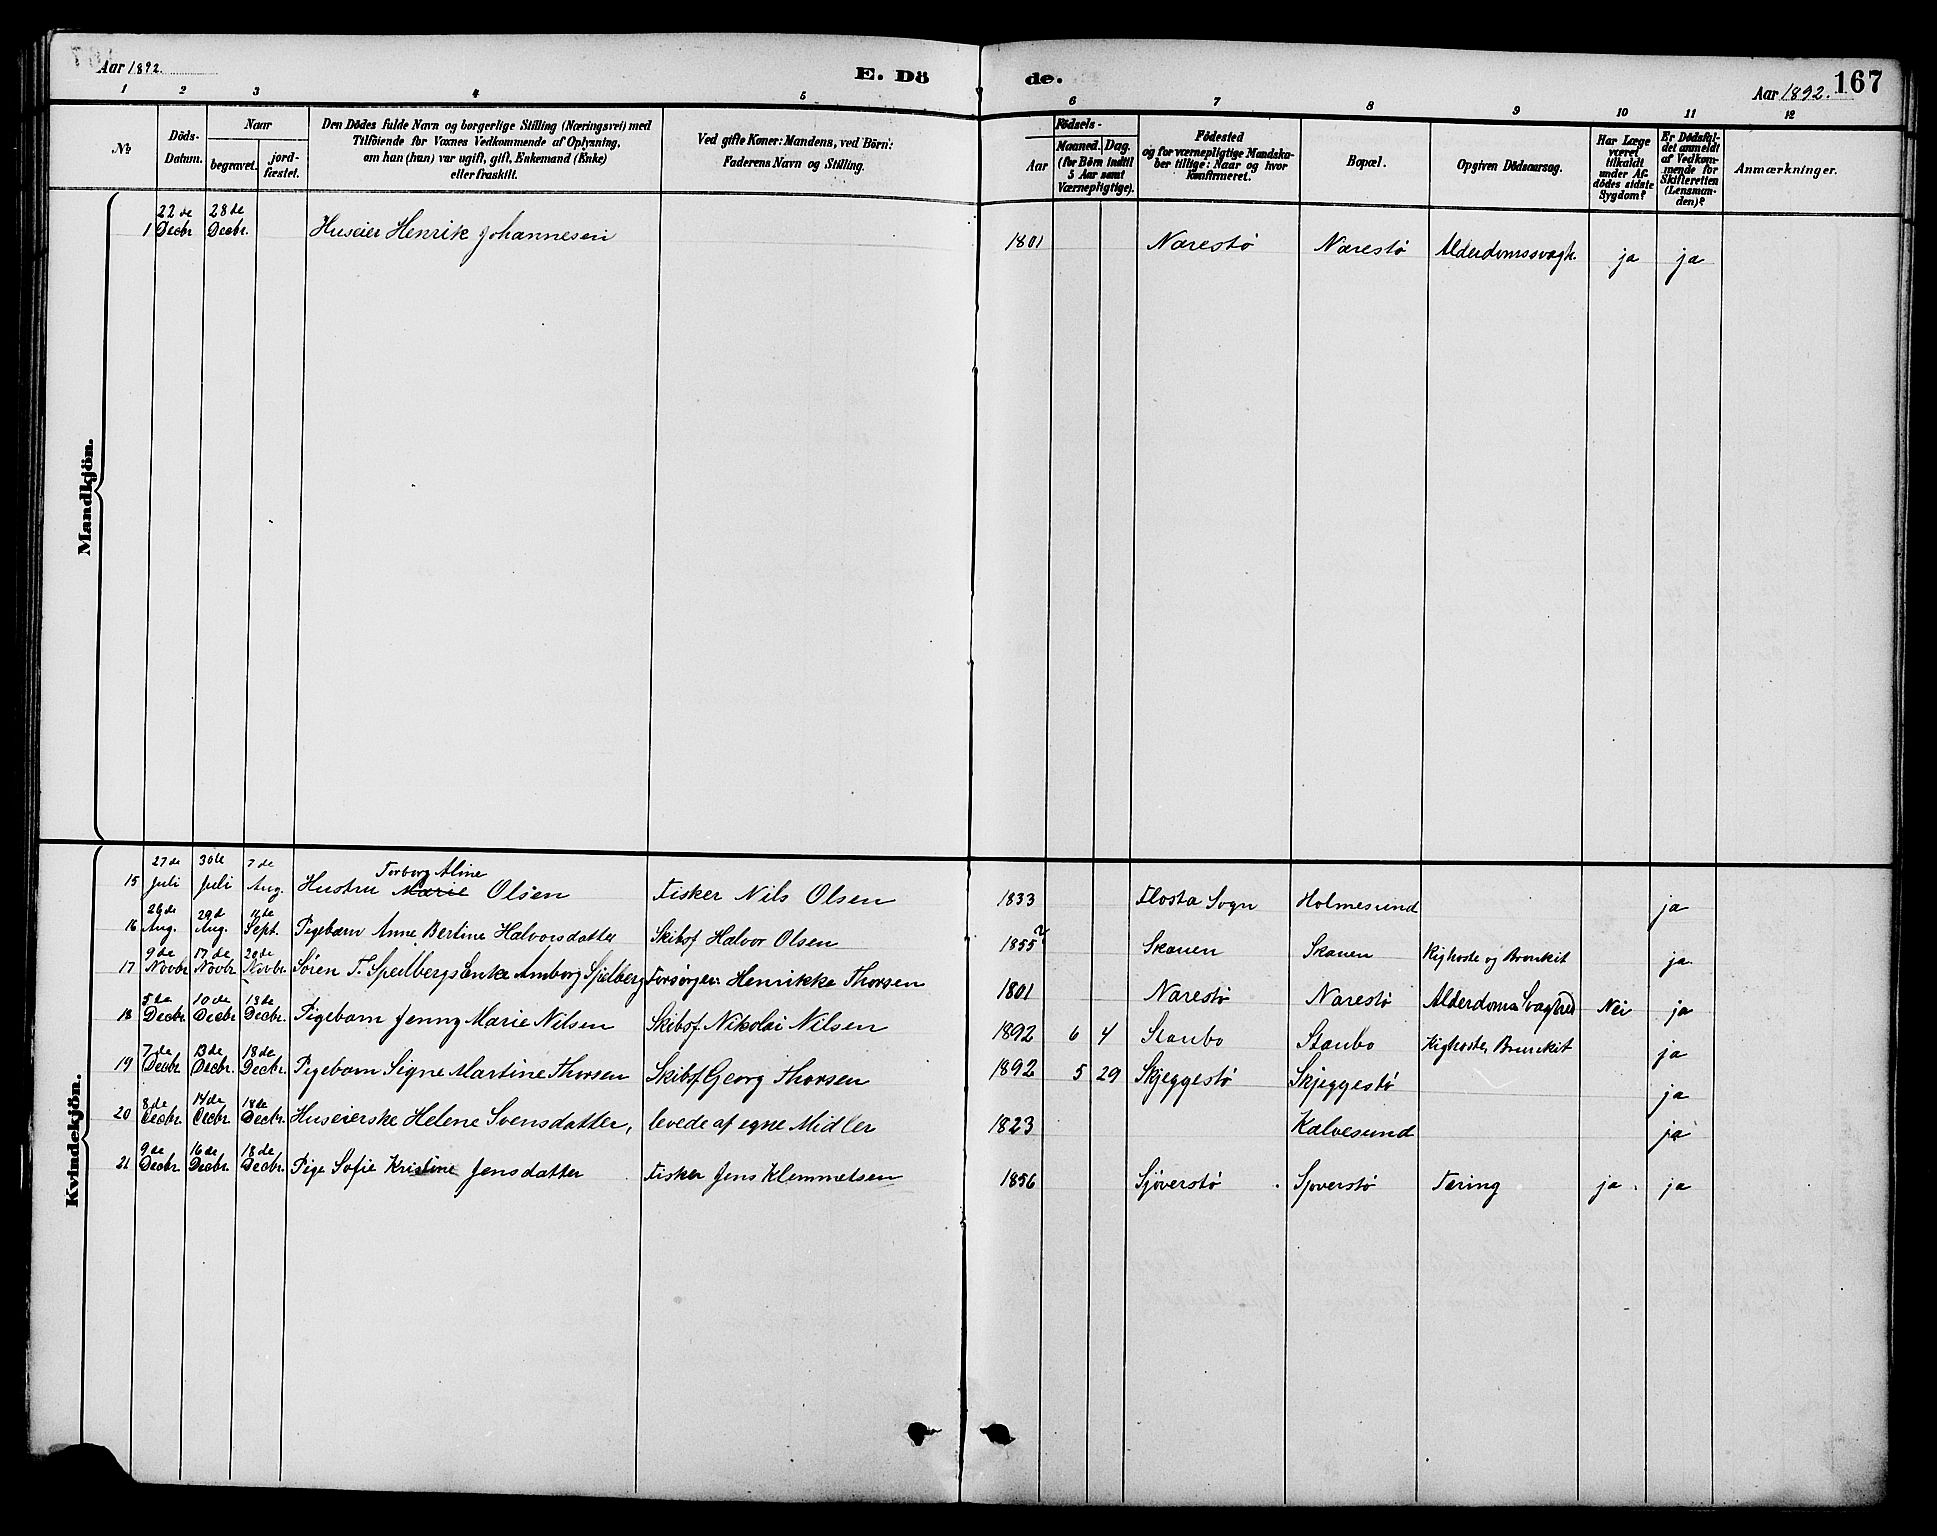 Aar 1892.
E. Dö
de.
Aar 1892.
167
1 2 3 4 5 6 7 8 9 10 11 12
No
Döds-Datum.
Naar
begravet.
jord-fæstet.
Den Dödes fulde Navn og borgerlige Stilling (Næringsvei) med
Tilföiende for Voxnes Vedkommende af Oplysning,
om han (hun) var ugift, gift, Enkemand (Enke)
eller fraskilt.
Ved gifte Koner: Mandens, ved Börn:
Faderens Navn og Stilling.
Födsels-
Aar
Maaned.
Dag.
(for Börn indtil
5 Aar samt
Værnepligtige).
Födested
og for værnepligtige Mandska-
ber tillige: Naar og hvor
konfirmeret.
Bopæl.
Opgiven Dödsaarsag.
Har Læge
været
tilkaldt
under Af-
dödes sidste
Sygdom?
Er Dödsfal-
det anmeldt
af Vedkom-
mende for
Skifteretten
(Lensman-
den)?
Anmærkninger.
Mandkjön.
1 22de Decbr 28de Decbr. Huseier Henrik Johannesen 1801 Narestø Narestø Alderdomssvagh. ja ja
Kvindekjön.
15 27de Juli 30te Juli 7de Aug. Hustru Marie Torborg Aline Olsen Fisker Nils Olsen 1833 Flosta Sogn Holmesund ja
16 26de Aug. 29d Aug. Sept. Pigebarn Anne Bertine Halvorsdatter Skibsf Halvor Olsen 1855? Skauen Skauen Kighoste og Bronkit ja
17 9de Novbr 17de Novbr 20de Novbr. Søren F. Speilbergs Enke Amborg Spilberg Forsørger: Henrikke Thorsen 1801 Narestø Narestø Alderdoms Svaghed Nei ja
18 5de Decbr. 10de Decbr. 13de Decbr. Pigebarn Jenny Marie Nilsen Skibsf. Nikolai Nilsen 1892 6 4 Staubo Staubo Kighoste, Bronkit ja
19 7de Decbr. 13de Decbr. 18de Decbr. Pigebarn Signe Martine Thorsen Skibsf Georg Thorsen 1892 5 29 Skjeggestø Skjeggestø ja
20 8de Decbr. 14de Decbr. 18de Decbr. Huseierske Helene Svensdatter, levede af egne Midler 1823 Kalvesund ja
21 9de Decbr. 16de Decbr. 18de Decbr. Pige Sofie Kristine Jensdatter Fisker Jens Klemmetsen 1856 Sjøverstø Sjøverstø Tæring ja ja